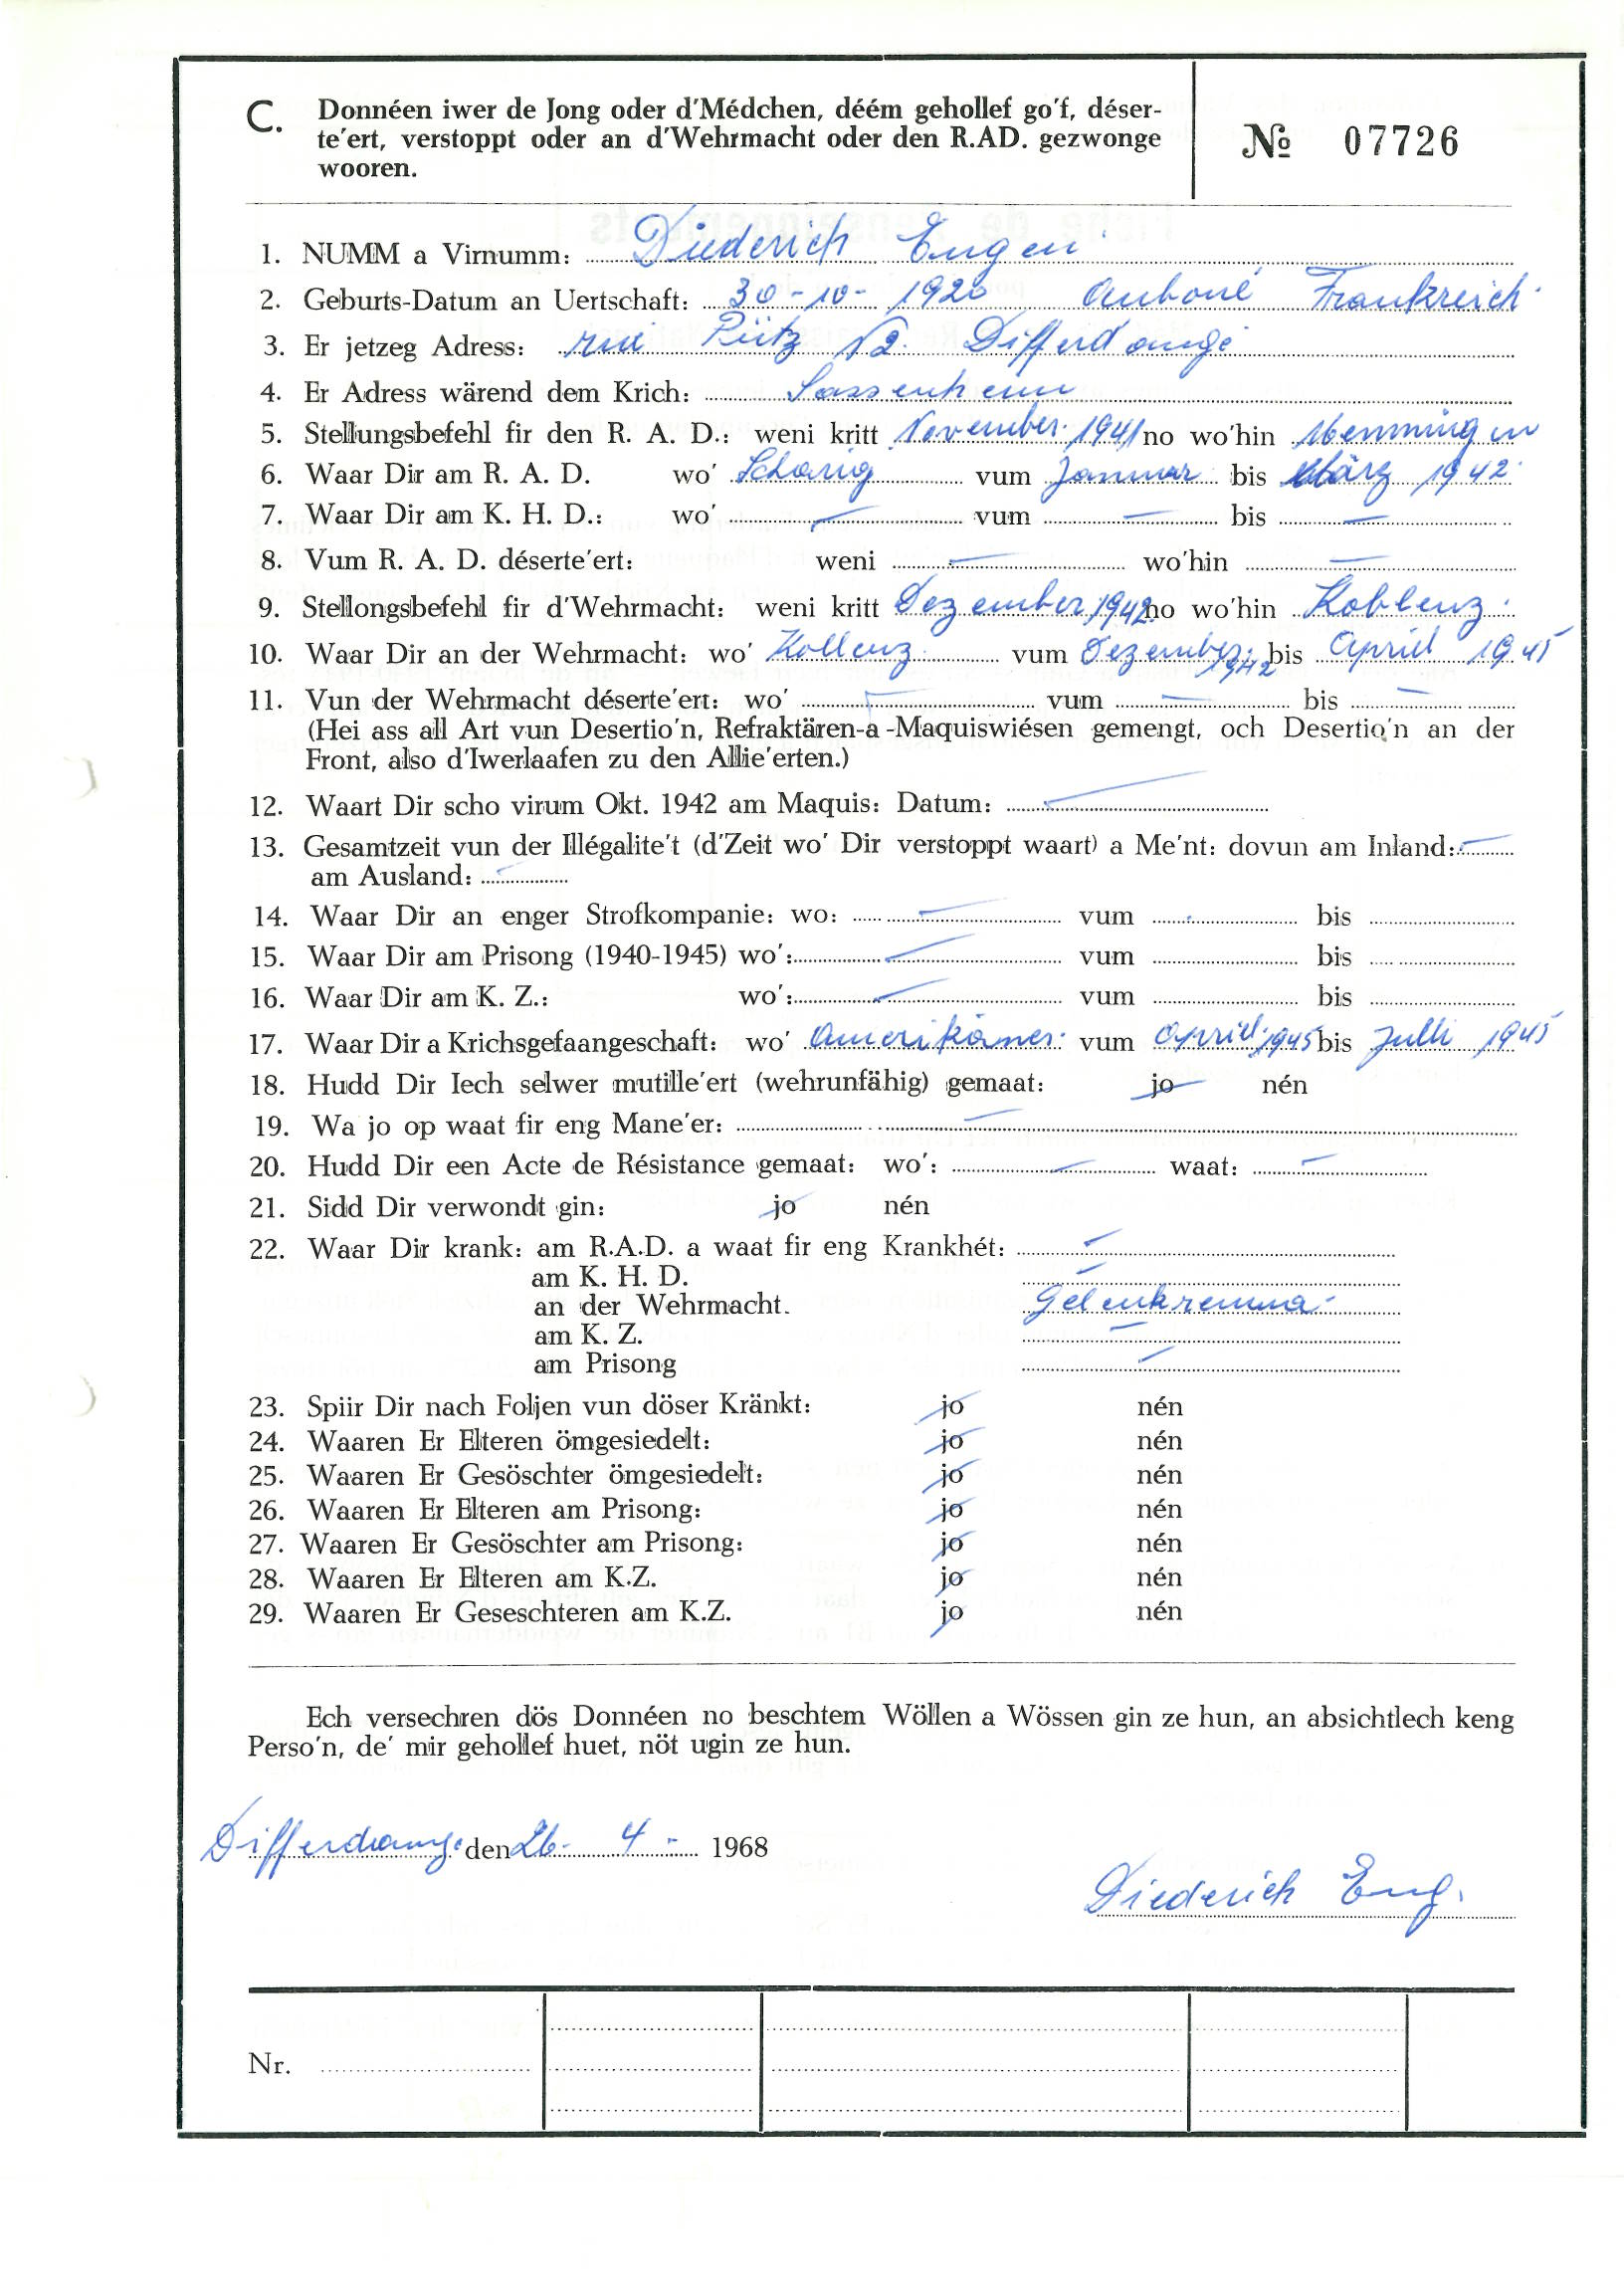 C. Donnéen iwer de Jong oder d'Médchen, déém gehollef go'f, déser-
te'ert, verstoppt oder an d'Wehrmacht oder den R.AD. gezwonge
wooren.
№ 07726
1. NUMM a Virnumm: Diederich Eugen
2. Geburts-Datum an Uertschaft: 30-10-1920 Auboué Frankreich
3. Er jetzeg Adress: rue Pütz 12. Differdange
4. Er Adress wärend dem Krich: Sassenheim
5. Stellungsbefehl fir den R. A. D.: weni kritt November 1941 no wo'hin Memmingen
6. Waar Dir am R. A. D. wo' vum Januar bis März 1942
7. Waar Dir am K. H. D.: wo' — vum — bis —
8. Vum R. A. D. déserte'ert: weni — wo'hin —
9. Stellongsbefehl fir d'Wehrmacht: weni kritt Dezember 1942 no wo'hin Koblenz
10. Waar Dir an der Wehrmacht: wo' Kollenz vum Dezember 1942 bis April 1945
11. Vun der Wehrmacht déserte'ert: wo' — vum — bis —
(Hei ass all Art vun Desertio'n, Refraktären-a-Maquiswiésen gemengt, och Desertio'n an der
Front, also d'Iwerlaafen zu den Allie'erten.)
12. Waart Dir scho virum Okt. 1942 am Maquis: Datum: —
13. Gesamtzeit vun der Illégalite't (d'Zeit wo' Dir verstoppt waart) a Me'nt: dovun am Inland: —
am Ausland: —
14. Waar Dir an enger Strofkompanie: wo: — vum bis
15. Waar Dir am Prisong (1940-1945) wo': — vum bis
16. Waar Dir am K. Z.: wo': — vum bis
17. Waar Dir a Krichsgefaangeschaft: wo' Amerikaner vum April 1945 bis Julli 1945
18. Hudd Dir Iech selwer mutille'ert (wehrunfähig) gemaat: jo nén
19. Wa jo op waat fir eng Mane'er: —
20. Hudd Dir een Acte de Résistance gemaat: wo': — waat: —
21. Sidd Dir verwondt gin: jo nén
22. Waar Dir krank: am R.A.D. a waat fir eng Krankhét: —
am K. H. D. —
an der Wehrmacht. Gelenkremma
am K. Z. —
am Prisong —
23. Spiir Dir nach Foljen vun döser Kränkt: jo nén
24. Waaren Er Elteren ömgesiedelt: jo nén
25. Waaren Er Gesöschter ömgesiedelt: jo nén
26. Waaren Er Elteren am Prisong: jo nén
27. Waaren Er Gesöschter am Prisong: jo nén
28. Waaren Er Elteren am K.Z. jo nén
29. Waaren Er Geseschteren am K.Z. jo nén
Ech versechren dös Donnéen no beschtem Wöllen a Wössen gin ze hun, an absichtlech keng
Perso'n, de' mir gehollef huet, nöt ugin ze hun.
Differdange den 26- 4- 1968
Diederich Eug.
Nr.